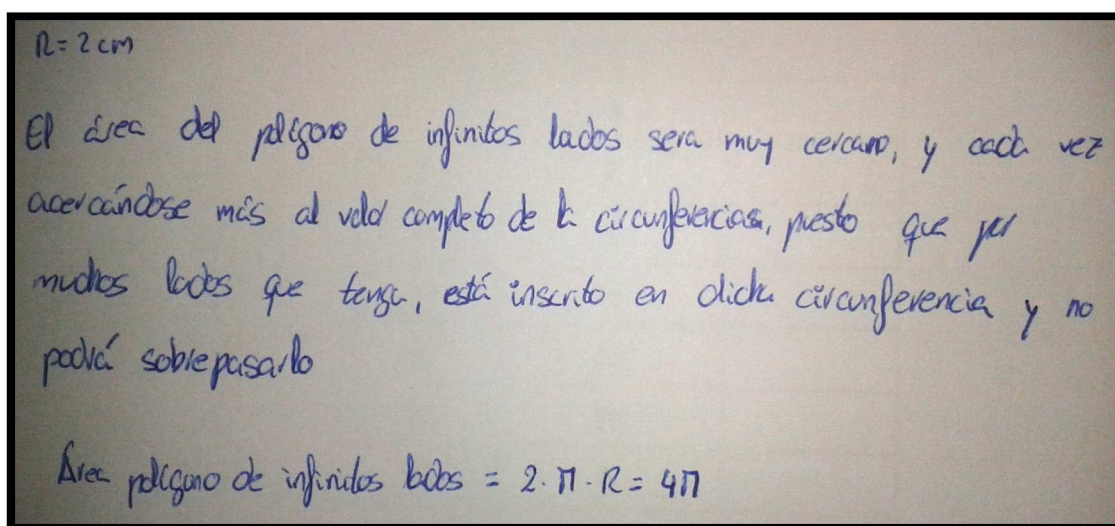 R = 2 cm
El área del polígono de infinitos lados sera muy cercano, y cada vez
acercándose más al valor completo de la circunferencia, puesto que por
muchos lados que tenga, está inscrito en dicha circunferencia y no
podrá sobrepasarlo
Área polígono de infinitos lados = 2 · π · R = 4π